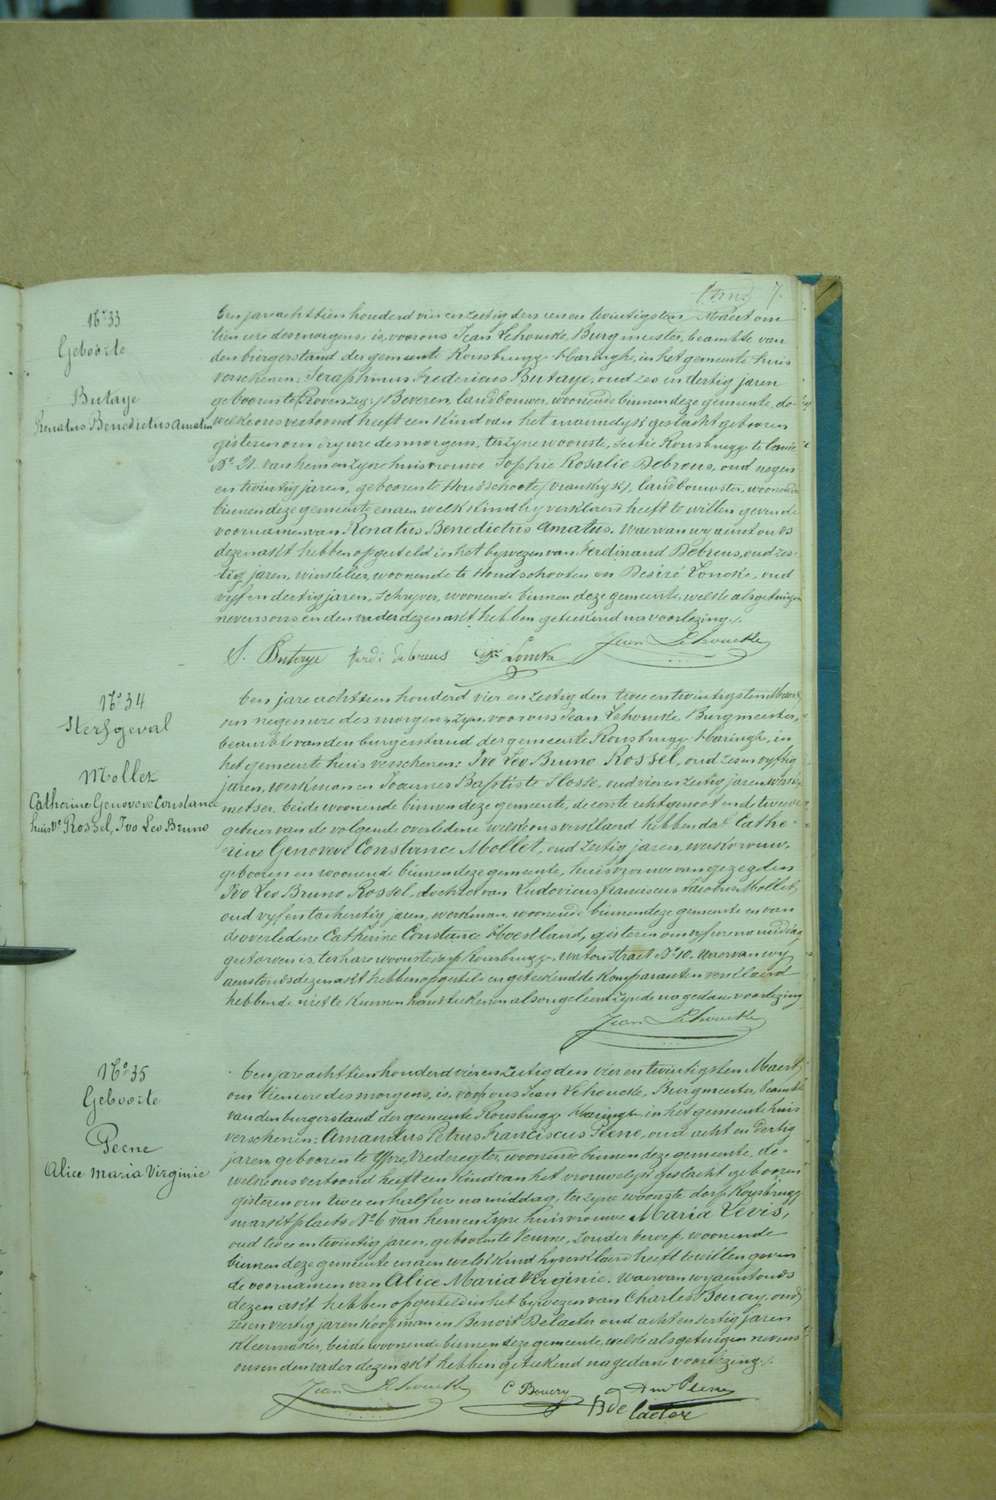 7.
N° 33
Geboorte
Butaye
Renatus Benedictus Amatus
Een jaar acht tien honderd vier en zestig den een en twintigsten Maert om
tien ure des morgens, is, voor ons Jean Lehoucke, Burgmeister, beambte van
den burgerstand der gemeente Rousbrugge Haringhe, in het gemeente huis
verschenen: Seraphinus Fredericus Butaye, oud zes en dertig jaren
geboren te Beveren, landbouwer, woonende binnen deze gemeente, de-
welke ons vertoond heeft een Kind van het mannelyk geslacht geboren
gisteren om ure des morgens, ter zyne woonste, Rousbrugge
N° van hem en zyne huisvrouwe Sophie Rosalie Debreus, oud negen
en twintig jaren, geboren te Hondschoote, landbouwster, woonende
binnen deze gemeente, en aen welk Kind hy verklaerd heeft te willen geven de
voornamen van Renatus Benedictus Amatus. Waervan wy aenstonds
dezen akt hebben opgesteld in het bywezen van Ferdinand Debreus, oud zes-
tig jaren, winkelier, woonende te Hondschooten en Desiré Loncke, oud
vyf en dertig jaren, Schryver, woonende binnen deze gemeente, welke als getuigen
nevens ons en den vader dezen akt hebben geteekend na voorlezing.
S. Butaye ferdi debreus Dré Loncke Jean Lehoucke
N° 34
Sterfgeval
Mollet
Catherine Genoveve Constance
huisve Rossel, Ivo Leo Bruno
Een jare acht tien honderd vier en zestig den twee en twintigsten Maert
om negen ure des morgens, zyn, voor ons Jean Lehoucke Burgmeister,
beambte van den burgerstand der gemeente Rousbrugge Haringhe, in
het gemeente huis verschenen: Ivo Leo Bruno Rossel, oud zes en vyftig
jaren, werkman en Joannes Baptiste Hosse, oud vier en zestig jaren
metser, beide woonende binnen deze gemeente, de eerste echtgenoot en de tweede
gebuer van de volgende overledene welke ons verklaerd hebben dat Cathe-
rine Genoveve Constance Mollet, oud zestig jaren, werkvrouw,
geboren en woonende binnen deze gemeente, huisvrouwe van gezegden
Ivo Leo Bruno Rossel, dochter van Ludovicus Franciscus Jacobus Mollet,
oud vyf en tachentig jaren, werkman, woonende binnen deze gemeente en van
de overledene Catherine Constance Hoestland, gisteren om vyf ure namiddag
gestorven is ter hare woonste dorp Rousbrugge, straet N° 10. Waervan wy
aenstonds dezen akt hebben opgesteld en geteekend de Komparanten verklaerd
hebbende niet te kunnen handteekenen als ongeleerd zynde na gedane voorlezing
Jean Lehoucke
N° 35
Geboorte
Peene
Alice Maria Virginie
Een jare acht tien honderd vier en zestig den vier en twintigsten Maert
om tien ure des morgens, is, voor ons Jean Lehoucke, Burgmeister, beambte
van den burgerstand der gemeente Rousbrugge Haringhe in het gemeente huis
verschenen: Amandus Petrus Franciscus Peene, oud acht en dertig
jaren, geboren te Ypre, woonende binnen deze gemeente, de-
welke ons vertoond heeft een Kind van het vrouwelyk geslacht geboren
gisteren om twee en half ure namiddag, ter zyne woonste dorp Rousbrugge
markt plaets N° 6 van hem en zyne huisvrouwe Maria Vevis,
oud twee en twintig jaren, geboren te Veurne, zonder beroep, woonende
binnen deze gemeente en aen welk Kind hy verklaerd heeft te willen geven
de voornamen van Alice Maria Virginie. Waervan wy aenstonds
dezen akt hebben opgesteld in het bywezen van Charles Bouery, oud
zeven veertig jaren koopman en Benoit Delaeter oud acht en dertig jaren
Kleermaker, beide woonende binnen deze gemeente, welke als getuigen nevens
ons en den vader dezen akt hebben geteekend na gedane voorlezing.
Jean Lehoucke C Bouery Am Peene
B de laeter